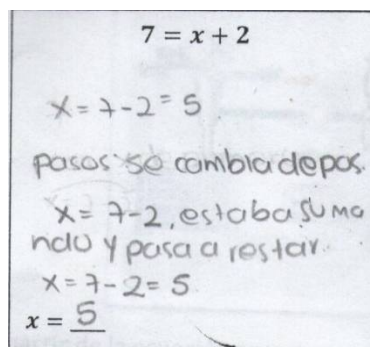 7 = x + 2
x = 7 - 2 = 5
pasos se cambia de pos.
x = 7 - 2, estaba suma
ndo y pasa a restar.
x = 7 - 2 = 5
x = 5